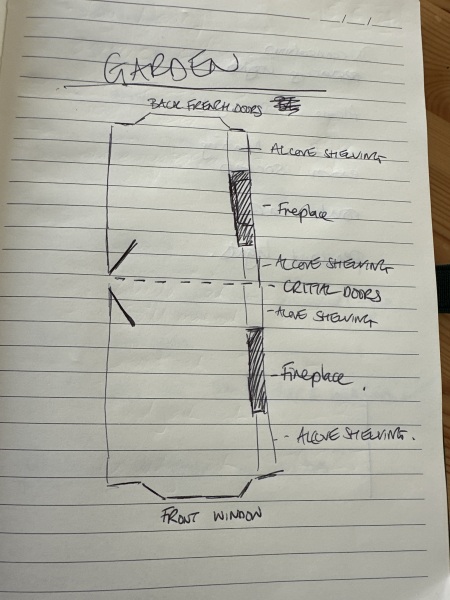 GARDEN
BACK FRENCH DOORS
ALCOVE SHELVING
Fireplace
ALCOVE SHELVING
CRITIAL DOORS
ALOVE SHELVING
Fireplace.
ALCOVE SHELVING.
FRONT WINDOW